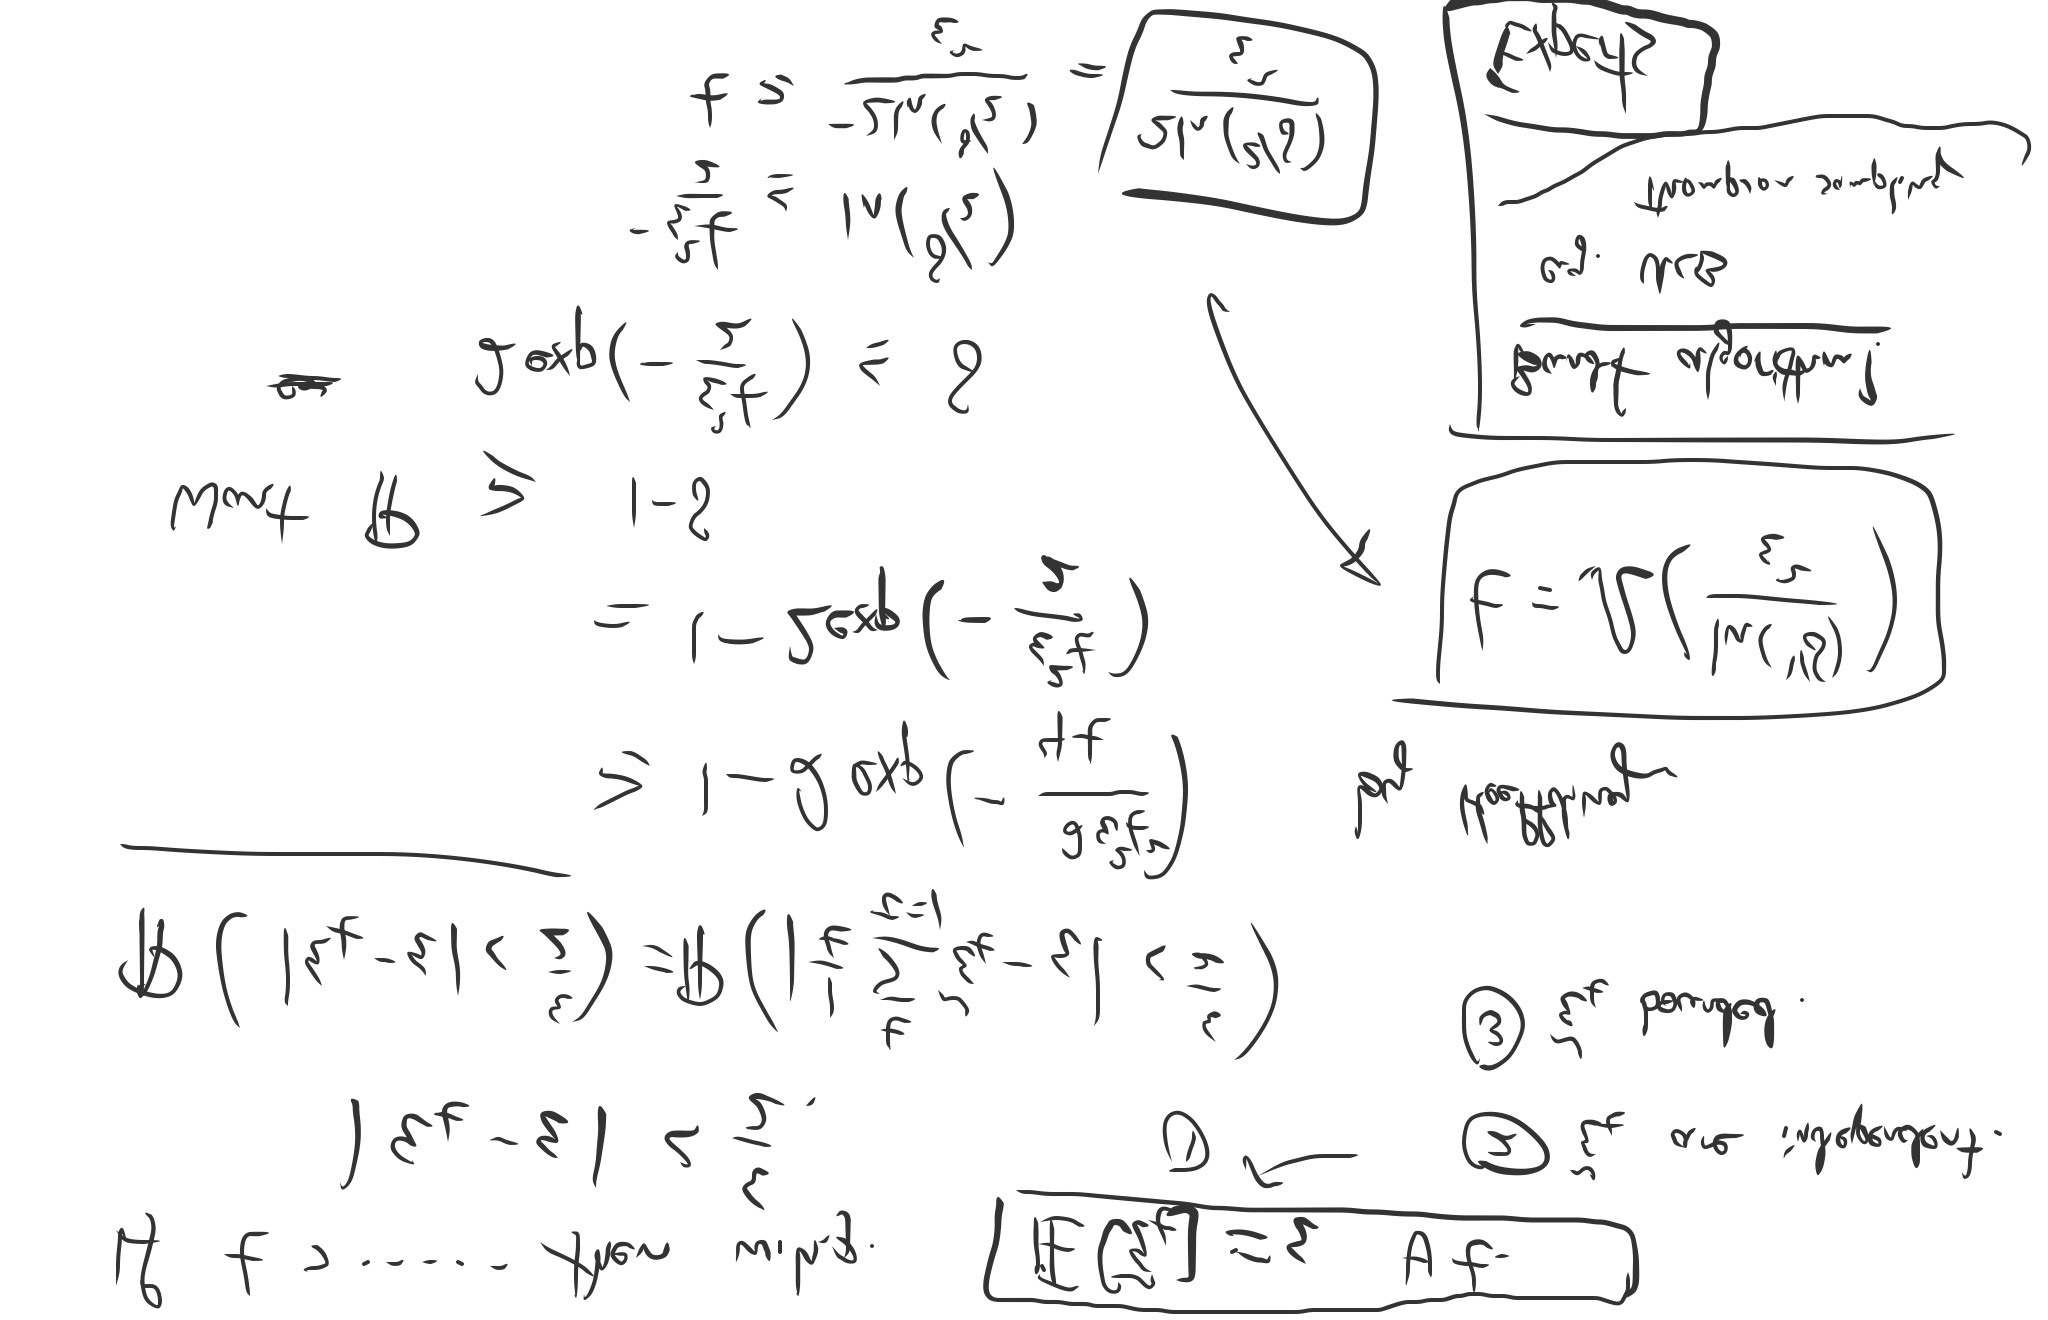 If t > ...... then w.h.p.
|ε_t - ε| < ε/2.
E[ε̃_t] = ε ∀ t.
①
② ε̃_t are independent.
③ ε̃_t bounded.
P(|ε_t - ε| < ε/2) = P(|1/t ∑_{τ=1}^{t} ε̃_t - ε| < ε/2)
≥ 1 - 2 exp(- 2ε²t² / 4t) by Hoeffding
= 1 - 2 exp(- ε²t / 2)
t = Ω(ln(1/δ) / ε²)
Want P ≥ 1 - δ
2 exp(- ε²t / 2) ≤ δ
- ε²t / 2 ≤ ln(δ/2)
t ≥ -2 ln(δ/2) / ε² = 2 ln(2/δ) / ε²
Bandit algorithm?
eg. UCB
Thompson sampling
Experts